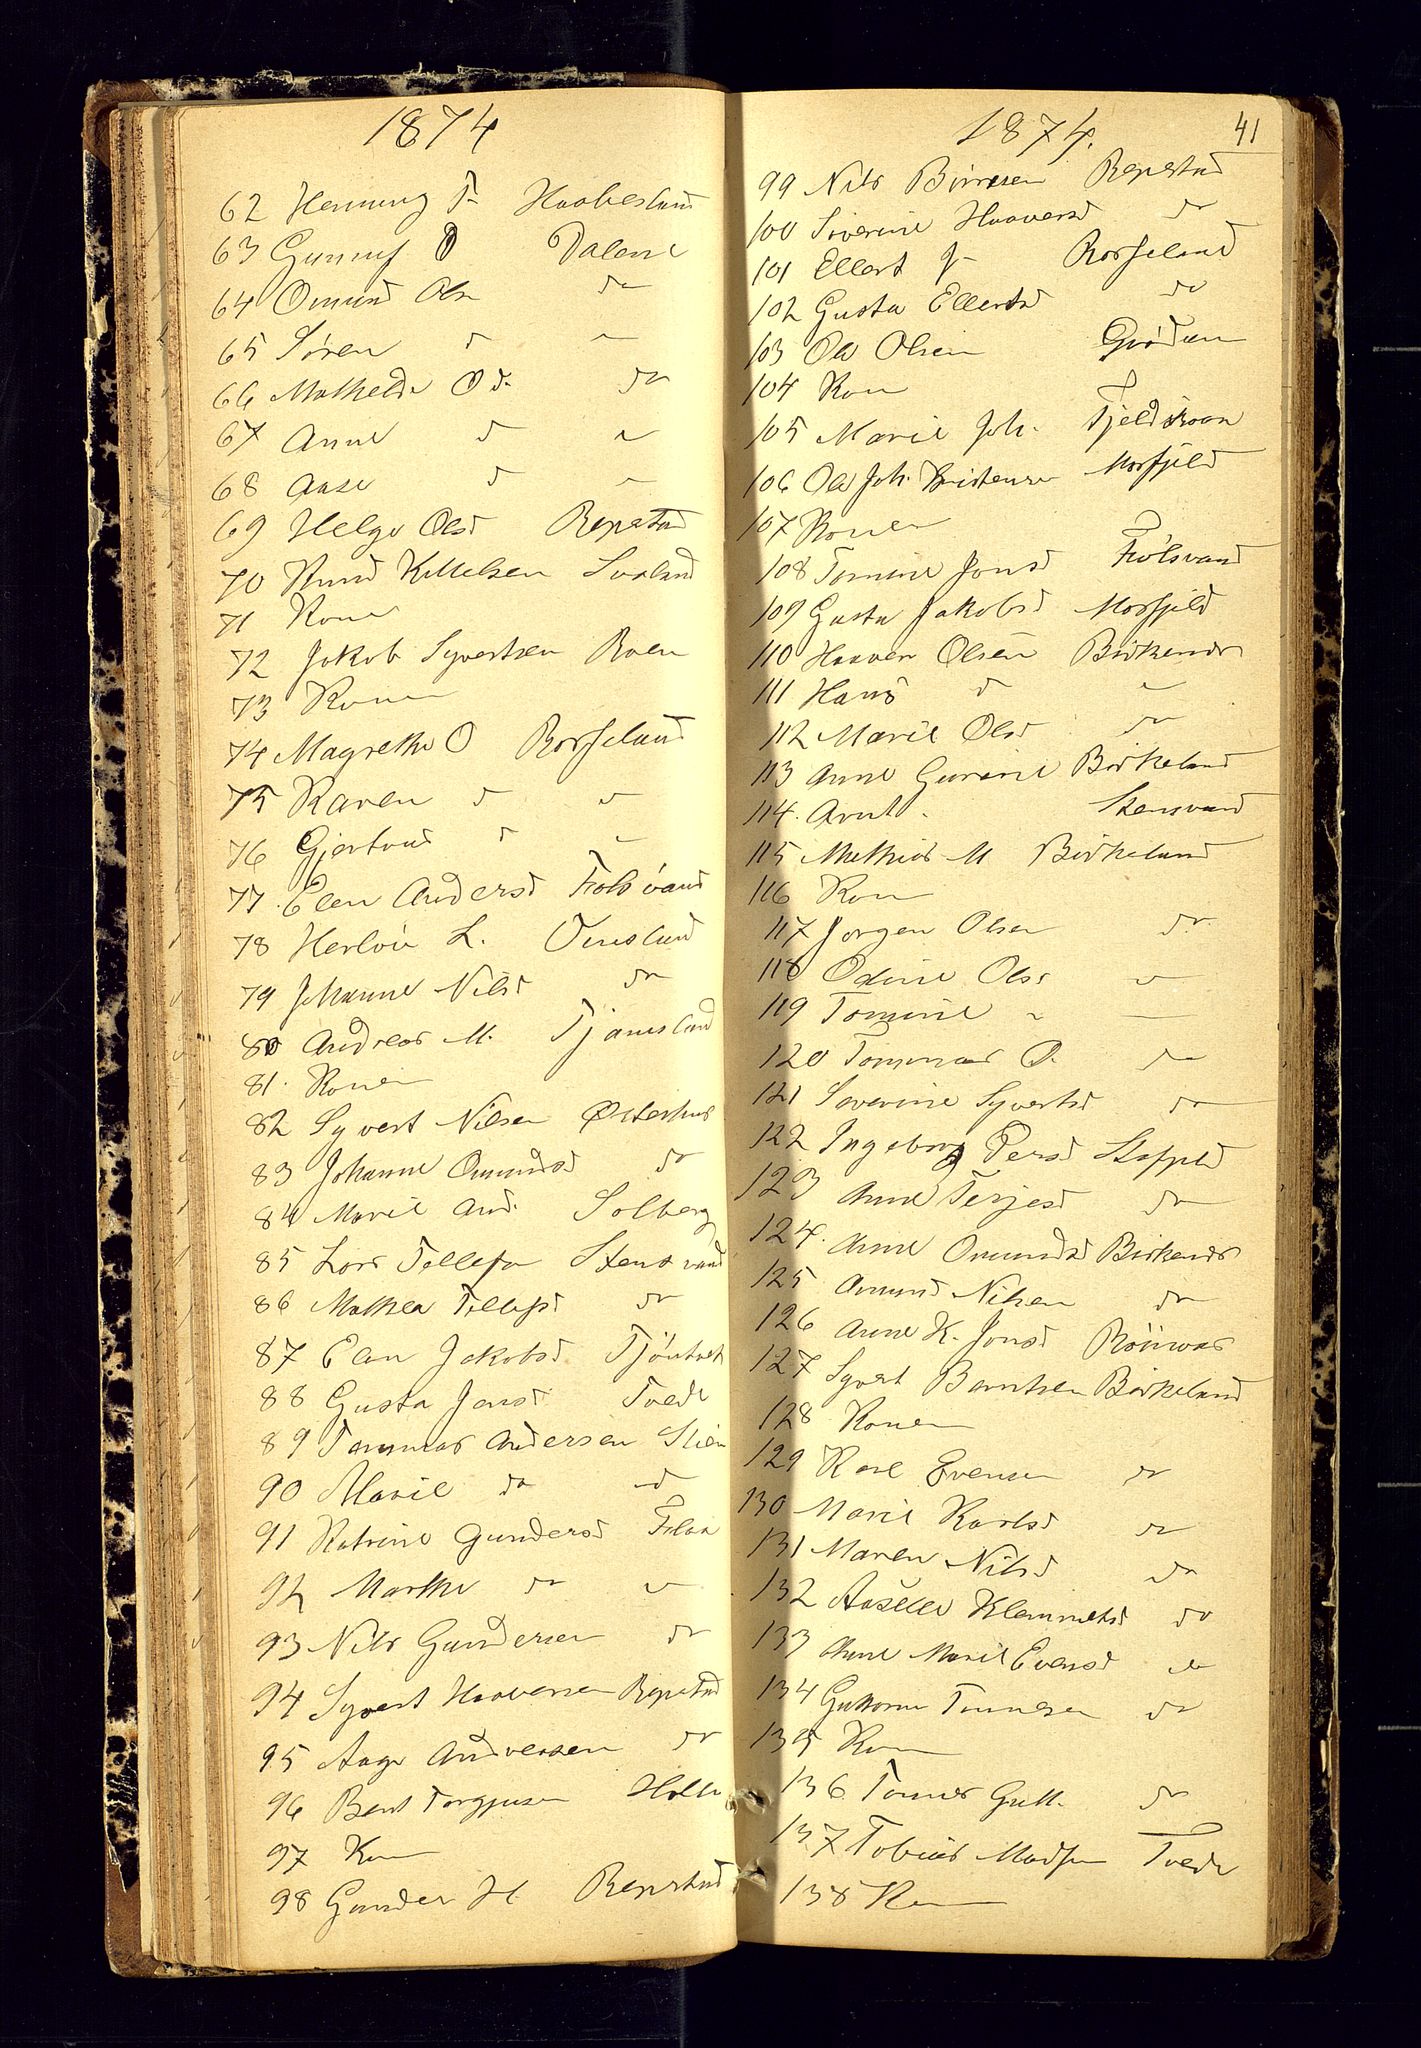 1874
62 Henning T. Haabesland
63 Gunnuf O Dalene
64 Omund Ols do
65 Søren d "
66 Mathilde O d. do
67 Anne d "
68 Aase d "
69 Helge Olsd Repstad
70 Knud Kittelsen Svaland
71 Kone
72 Jakob Syvertsen Roen
73 Konen
74 Magrethe O Rosseland
75 Karen d "
76 Gjertrud d "
77 Elen Andersd Fjolsvand
78 Herlov L.
79 Johanne Nilsd do
80 Andreas M. Tjamsland
81 Konen
82 Syvert Nilsen Østerhus
83 Johanne Omundsd do
84 Marie And. Solberg
85 Lars Tellefsen Stensvand
86 Mathea Tellefsd do
87 Elen Jakobsd
88 Gusta Jensd Tvede
89 Tommas Andersen
90 Marie do d
91 Katrine Gundersd Flaa
92 Marthe do "
93 Nils Gundersen do
94 Syvert Haaversen Repstad
95 Aage Andreasen do
96 Bent Torgjusen
97 Kone
98 Gunder H Repstad
1874. 41
99 Nils Børresen Repstad
100 Siverine Haaversd do
101 Ellert J Rosseland
102 Gusta Ellertsd do
103 Ole Olsen
104 Kone
105 Marie Joh. Fjeldskaar
106 Ole Joh. Kristensen Mosfjeld
107 Konen
108 Tomine Jensd Fjolsvand
109 Gusta Jakobsd Mosfjeld
110 Haaver Olsen Birkenes
111 Hans d "
112 Marie Olsd do
113 Anne Gurine Birkeland
114. Arnt. Stensvand
115 Mathias M Birkeland
116 Kone
117 Jorgen Olsen do
118 Odine Olsd "
119 Tomine " —
120 Tommas O. do
121 Severine Syvertsd do
122 Ingeborg Persd
123 Anne Terjesd do
124. Anne Omundsd Birkenes
125 Omund Nilsen do
126 Anne K. Jensd
127 Syvert Berntsen Birkeland
128 Konen
129 Karl Evensen do
130 Marie Karlsd do
131 Maren Nilsd do
132 Aaselle Klemmetsd do
133 Anne Marie Evensd do
134 Guttorm Tonnesen do
135 Kone
136 Tønnes Gutt. do
137 Tobias Madsen Tvede
138 Kone